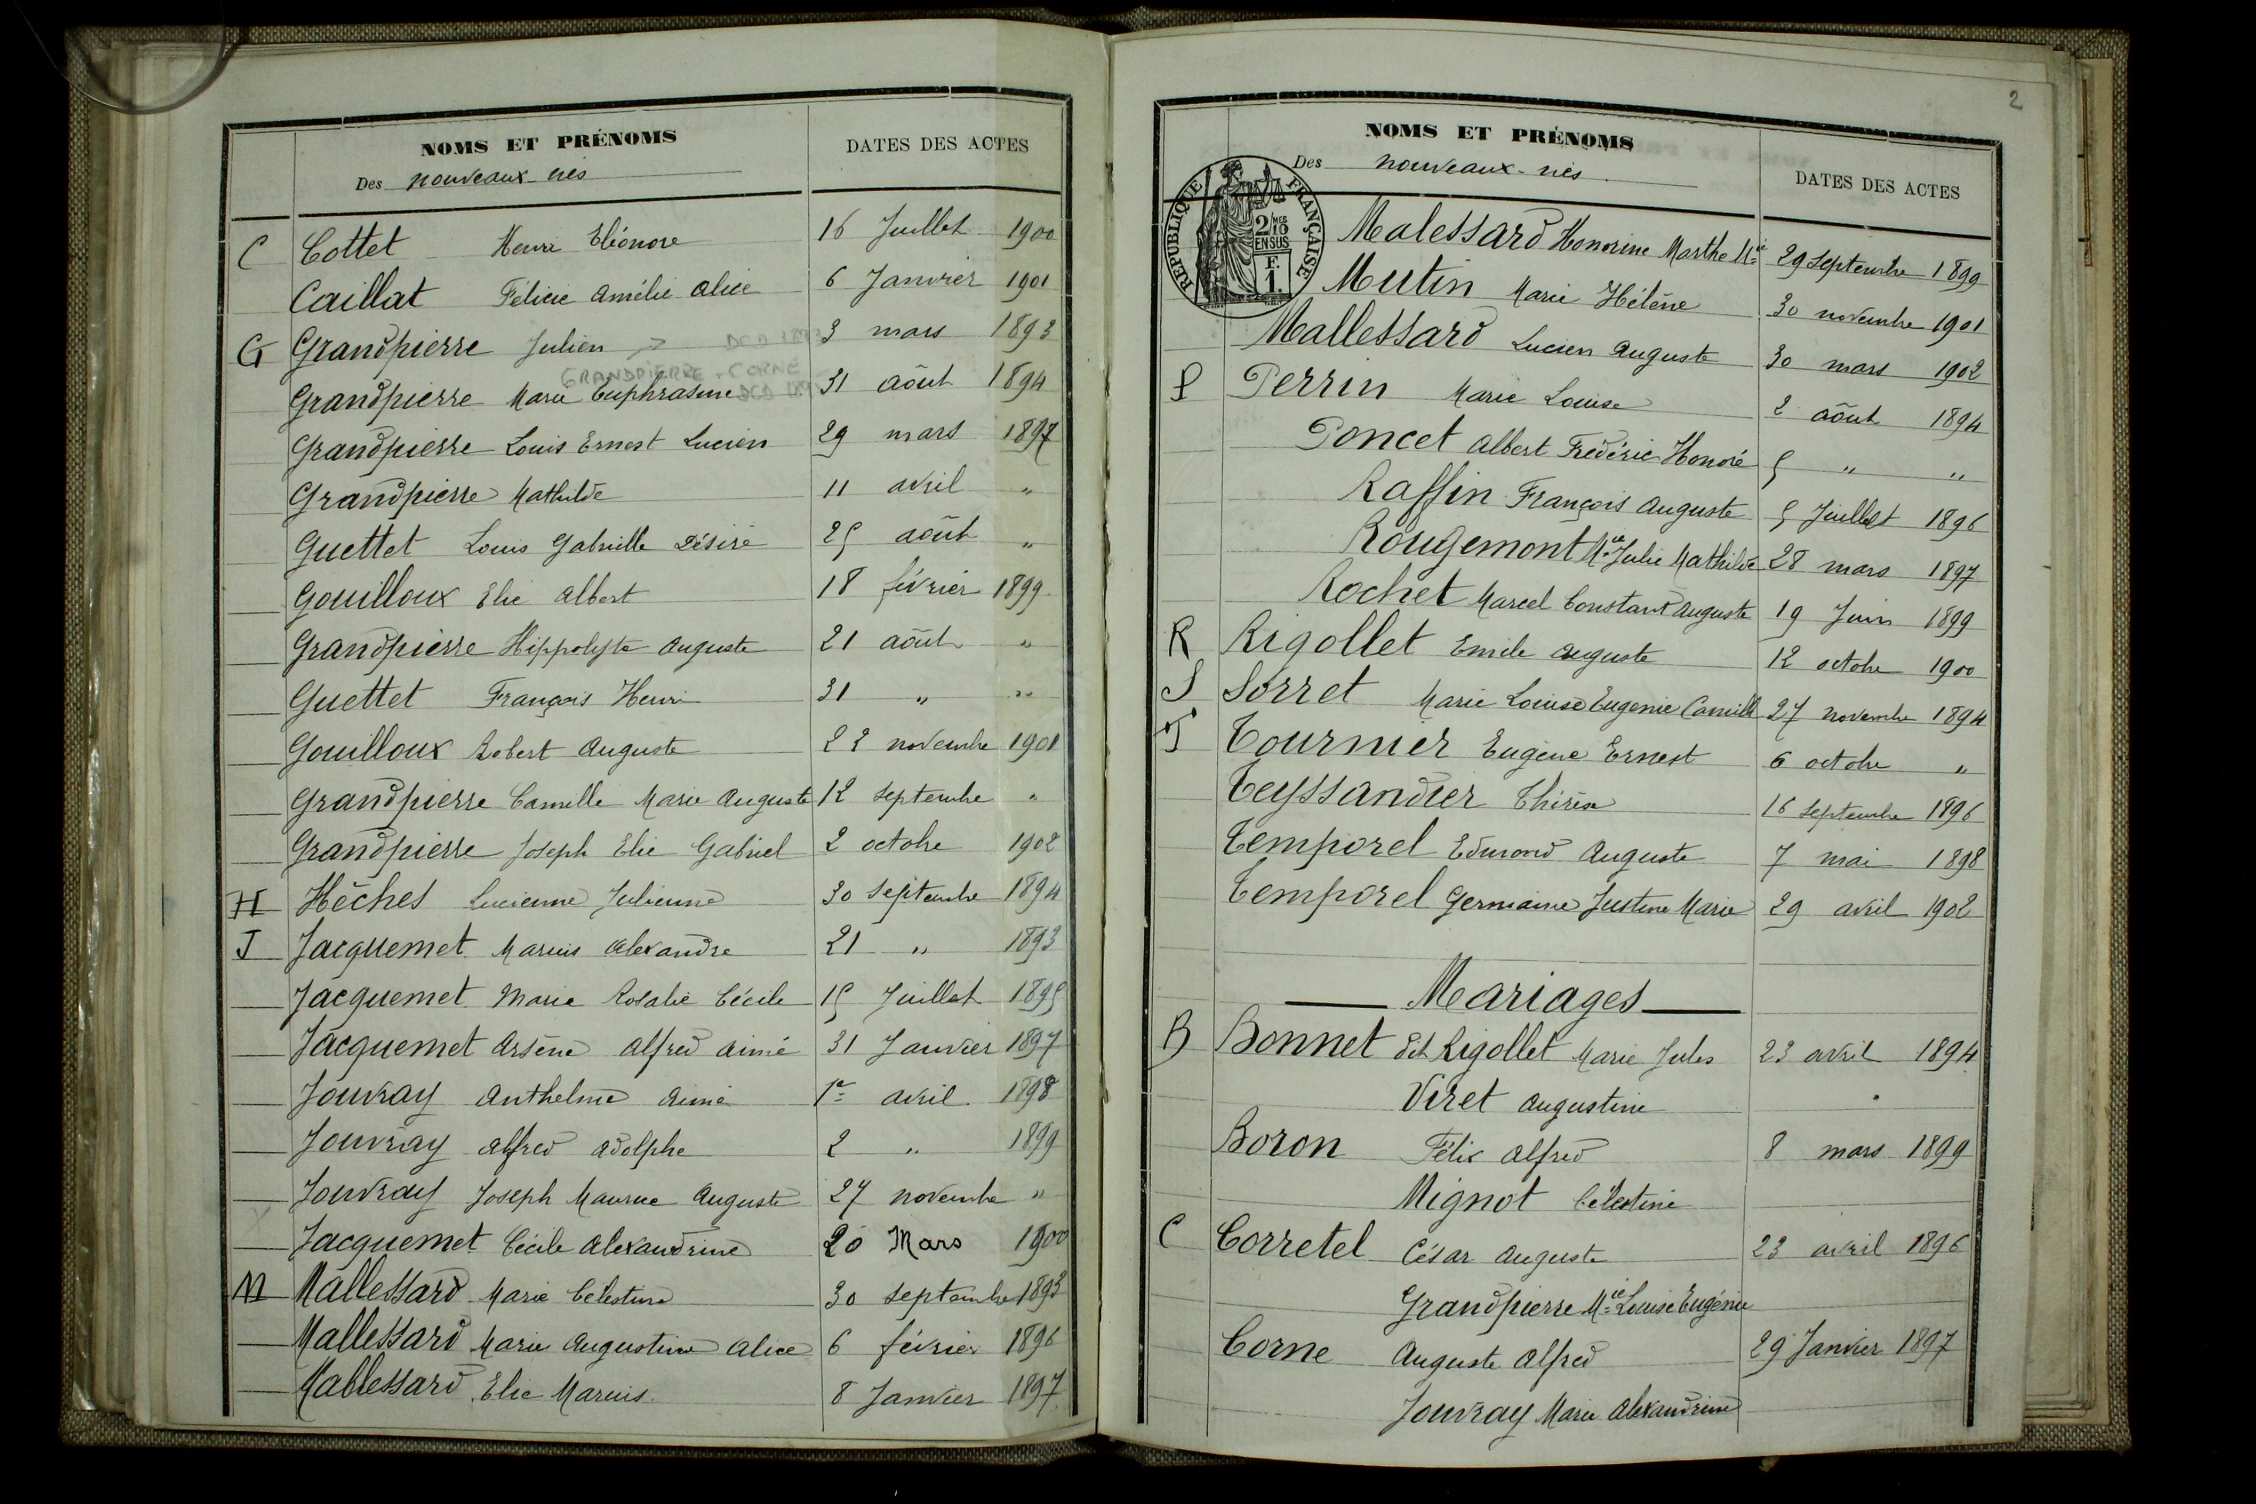 NOMS ET PRÉNOMS
DATES DES ACTES
Des nouveaux-nés
C Cottet Henri Eléonore 16 Juillet 1900
Caillat Félicie Amélie Alice 6 Janvier 1901
G Grandpierre Julien 3 mars 1893
GRANDPIERRE - CORNE
Grandpierre Marie Euphrasine 31 août 1894
Grandpierre Louis Ernest Lucien 29 mars 1897
Grandpierre Mathilde 11 avril "
Guettet Louis Gabrielle Désiré 25 août "
Gouilloux Elie Albert 18 février 1899
Grandpierre Hippolyte Auguste 21 août "
Guettet François Henri 31 " "
Gouilloux Robert Auguste 22 novembre 1901
Grandpierre Camille Marie Auguste 12 septembre "
Grandpierre Joseph Elie Gabriel 2 octobre 1902
H Hêches Lucienne Julienne 30 septembre 1894
J Jacquemet Marius Alexandre 21 " 1893
Jacquemet Marie Rosalie Cécile 15 Juillet 1895
Jacquemet Arsène Alfred Aimé 31 Janvier 1897
Jouvray Anthelme Aimé 1er avril 1898
Jouvray Alfred Adolphe 2 " 1899
Jouvray Joseph Maurice Auguste 27 novembre "
Jacquemet Cécile Alexandrine 20 Mars 1900
M Mallessard Marie Célestine 30 septembre 1893
Mallessard Marie Augustine Alice 6 février 1896
Mallessard Elie Marius 8 Janvier 1897
2
NOMS ET PRÉNOMS
Des nouveaux-nés
DATES DES ACTES
RÉPUBLIQUE FRANÇAISE
2/10 MES
EN SUS
F.
1.
Malessard Honorine Marthe Mie 29 septembre 1899
Mutin Marie Hélène 30 novembre 1901
Mallessard Lucien Auguste 30 mars 1902
P Perrin Marie Louise 2 août 1894
Poncet Albert Frédéric Honoré 5 " "
Raffin François Auguste 5 Juillet 1896
Rougemont Mie Julie Mathilde 28 mars 1897
Rochet Marcel Constant Auguste 19 Juin 1899
R Rigollet Emile Auguste 12 octobre 1900
S Sorret Marie Louise Eugenie Camille 27 novembre 1894
T Tournier Eugène Ernest 6 octobre "
Teyssandier Thérèse 16 septembre 1896
Temporel Edmond Auguste 7 mai 1898
Temporel Germaine Justine Marie 29 avril 1902
Mariages
B Bonnet dit Rigollet Marie Jules 23 avril 1894
Viret Augustine
Boron Félix Alfred 8 mars 1899
Mignot Célestine
C Corretel César Auguste 23 avril 1896
Grandpierre Mie Louise Eugénie
Corne Auguste Alfred 29 Janvier 1897
Jouvray Marie Alexandrine